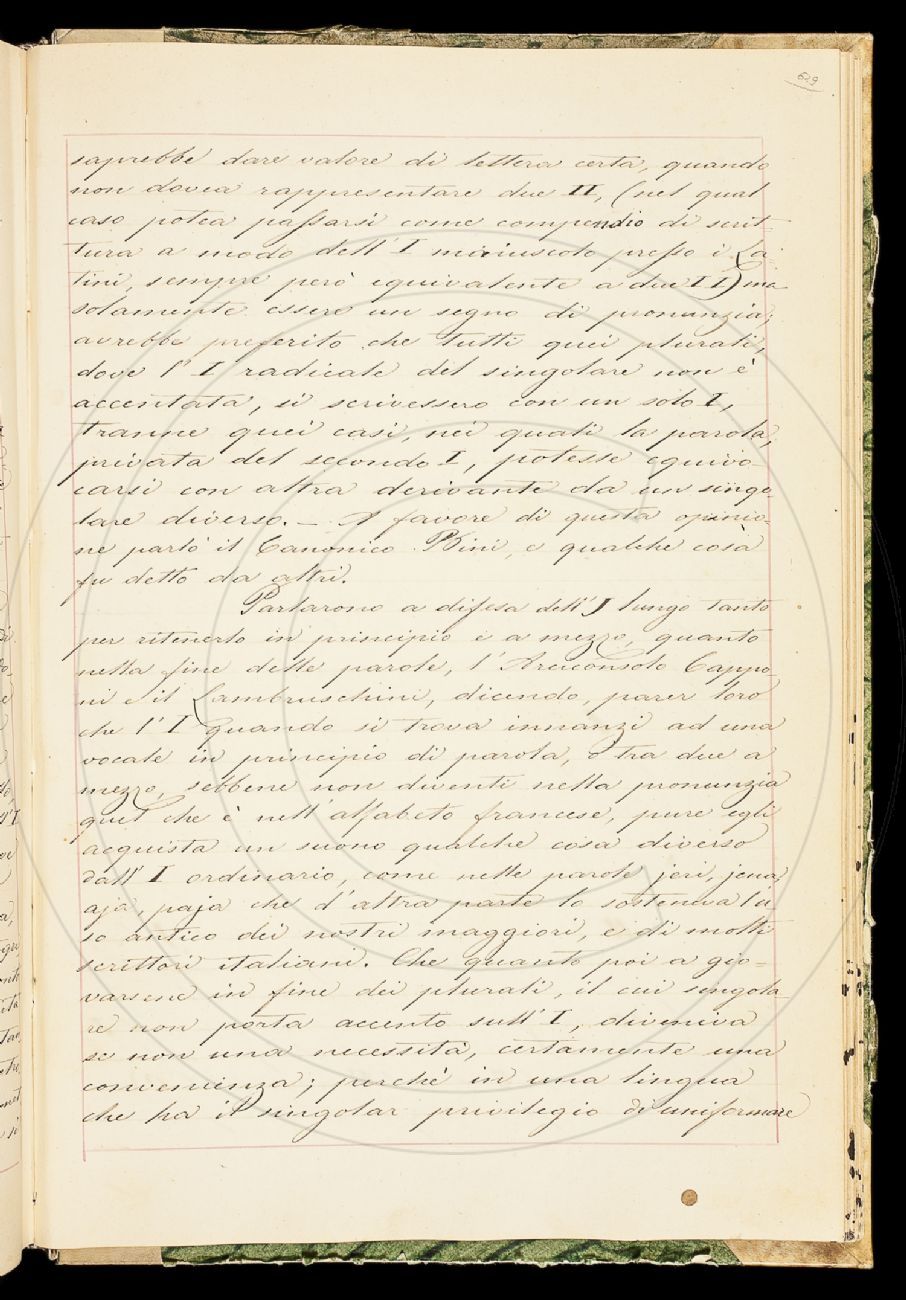 629
saprebbe dare valore di lettera certa, quando
non dovea rappresentare due II, (nel qual
caso potea passarsi come compendio di scrit-
tura a modo dell'I minuscolo presso i La-
tini, sempre però equivalente a due II) ma
solamente essere un segno di pronunzia;
avrebbe preferito che tutti quei plurali,
dove l'I radicale del singolare non è
accentata, si scrivessero con un solo I,
tranne quei casi, nei quali la parola,
privata del secondo I, potesse equivo-
carsi con altra derivante da un singo-
lare diverso. — A favore di questa opinio-
ne parlò il Canonico Bini, e qualche cosa
fu detto da altri.
Parlarono a difesa dell'J lungo tanto
per ritenerlo in principio e a mezzo, quanto
nella fine delle parole, l'Arciconsolo Cappo-
ni e il Lambruschini, dicendo, parer loro
che l'I quando si trova innanzi ad una
vocale in principio di parola, o tra due a
mezzo, sebbene non diventi nella pronunzia
quel che è nell'alfabeto francese, pure egli
acquista un suono qualche cosa diverso
dall'I ordinario, come nelle parole jeri, jena,
aja, paja che d'altra parte lo sosteneva l'u-
so antico dei nostri maggiori, e di molti
scrittori italiani. Che quanto poi a gio-
varsene in fine dei plurali, il cui singola
re non porta accento sull'I, diveniva
se non una necessità, certamente una
convenienza; perchè in una lingua
che ha il singolar privilegio di uniformare